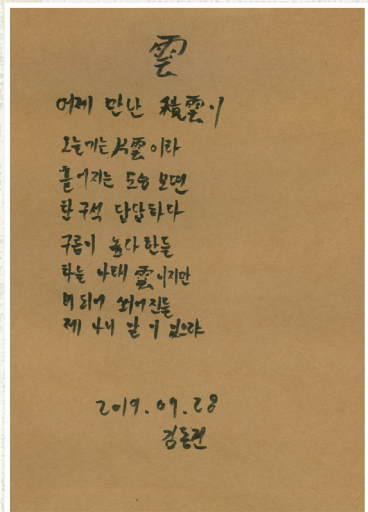 雲
어제 만난 積雲이
오늘에는 片雲이라
흩어지는 모습 보면
한 구석 답답하다
구름이 높다 한들
하늘 아래 雲이지만
비 되어 쏟어진들
제 나
2019.09.28
김동권